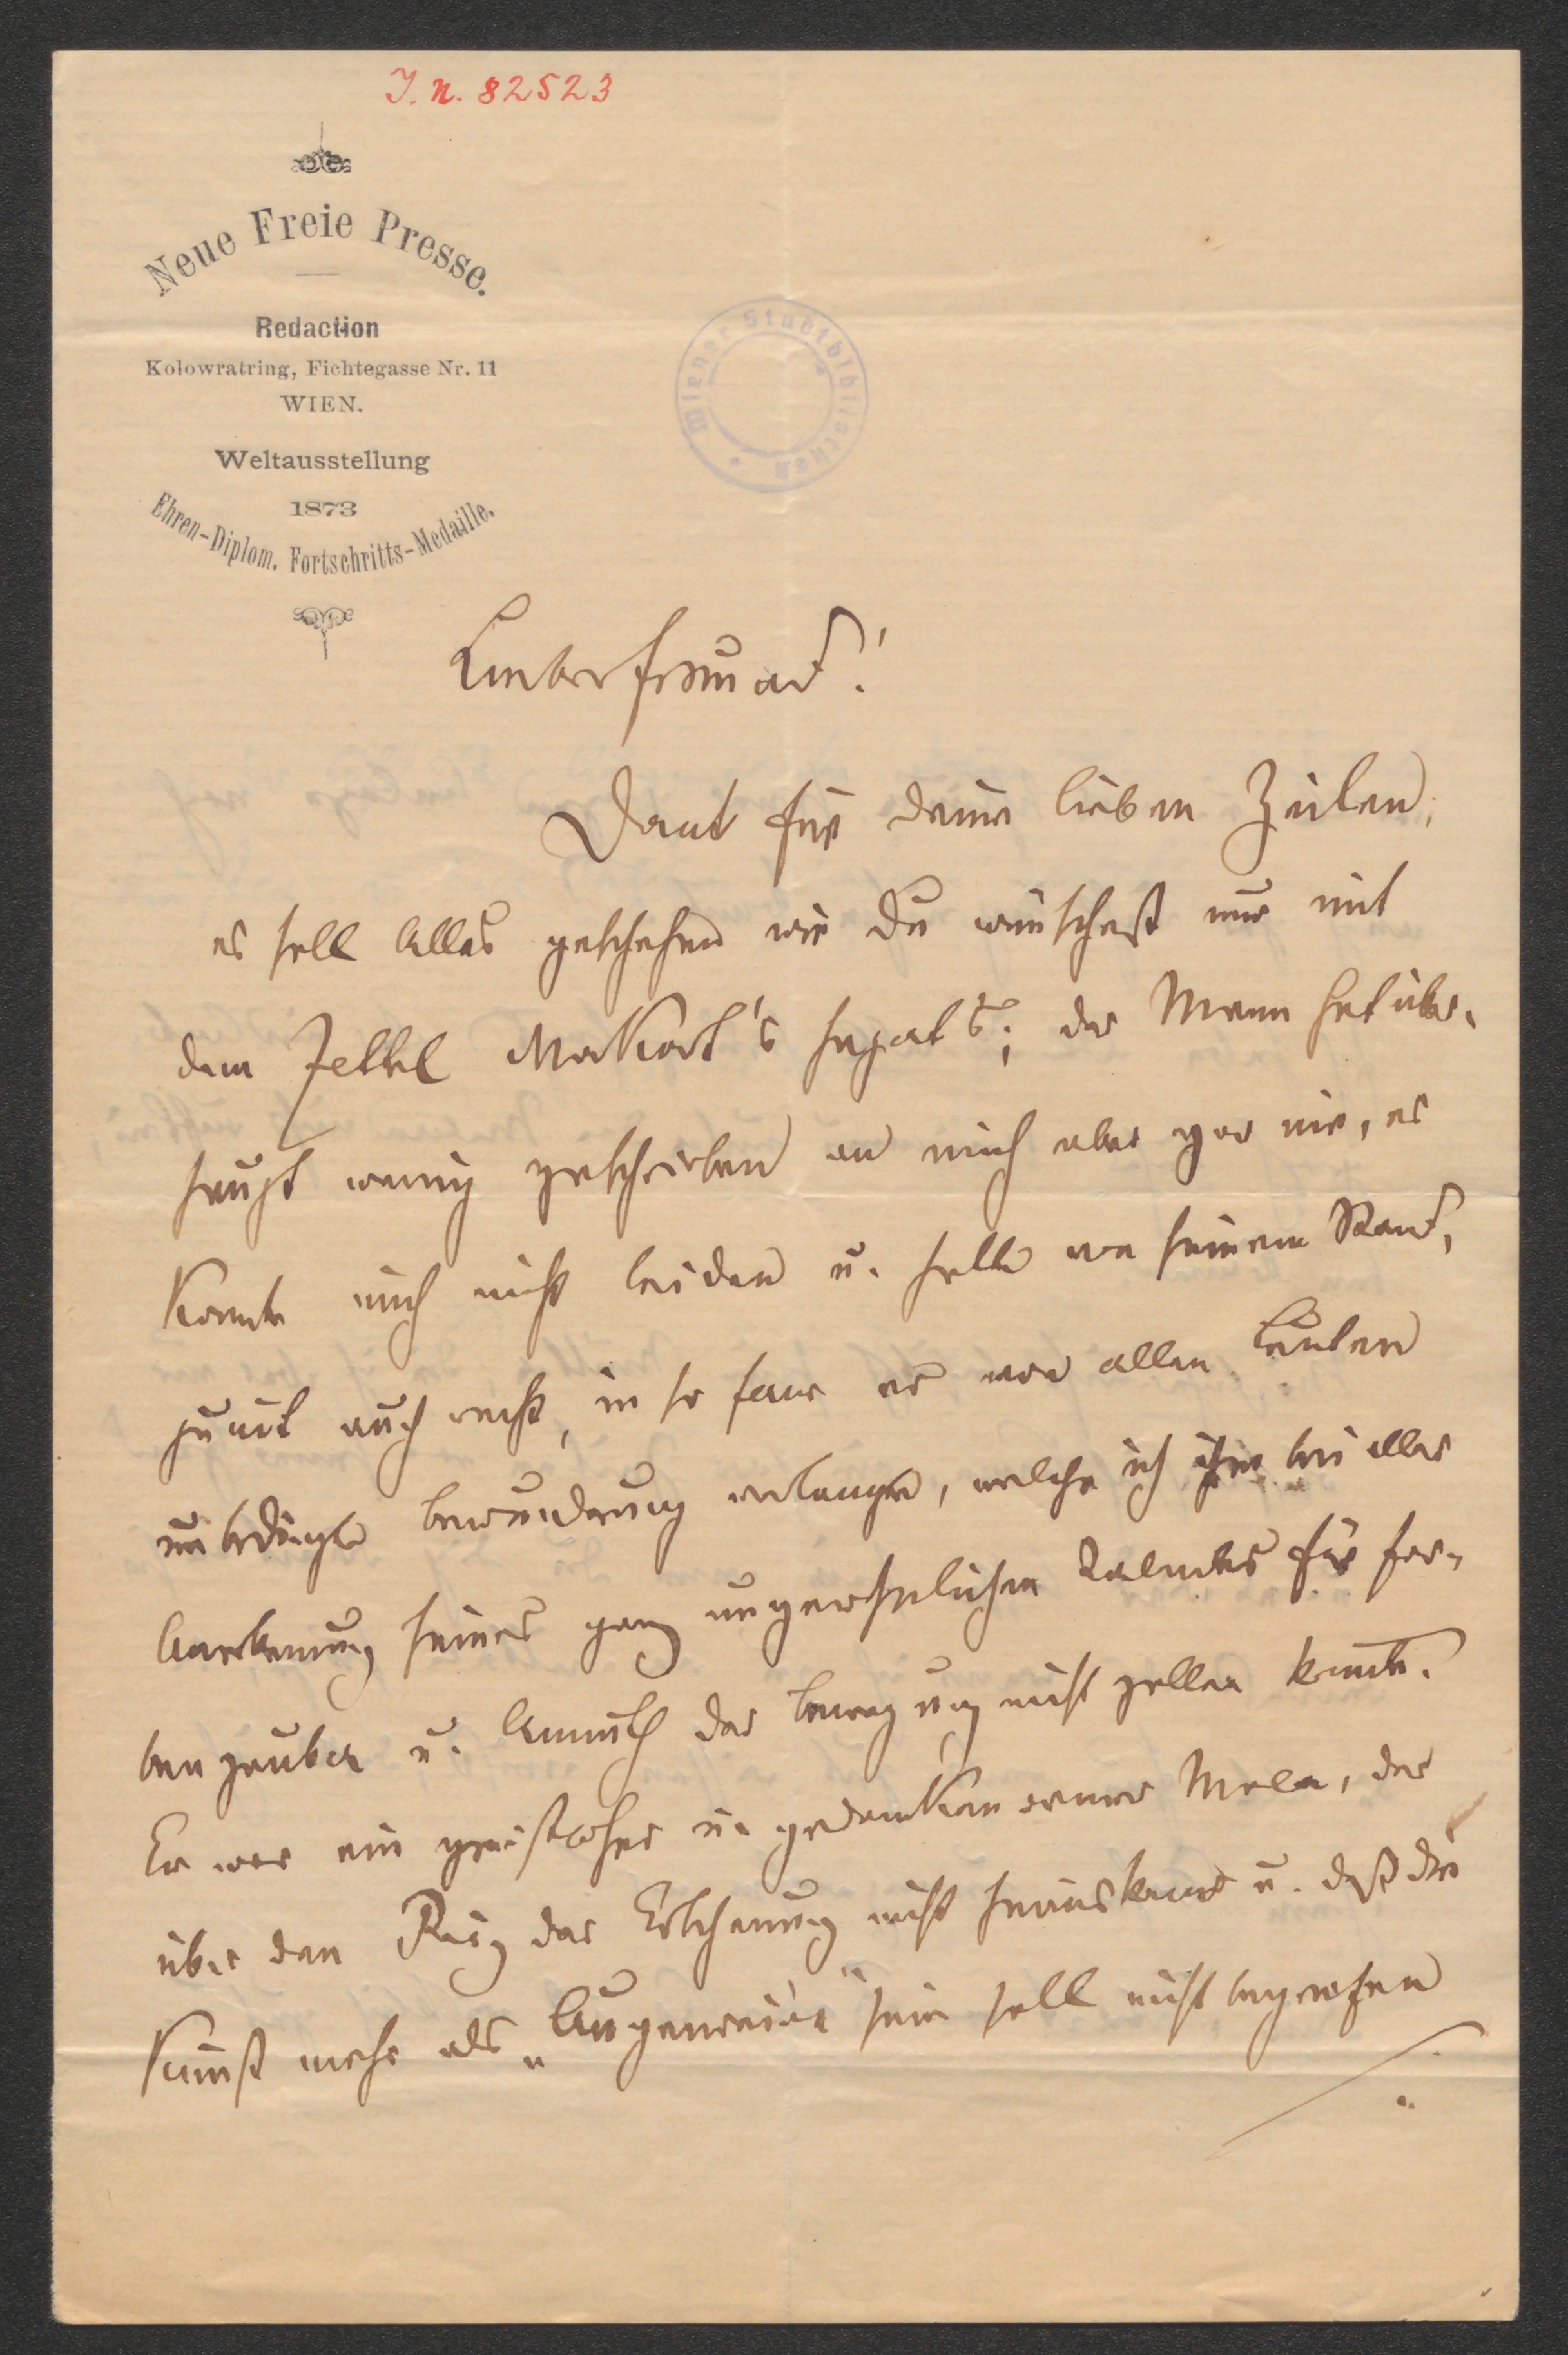 J. N. 82523
Neue Freie Presse.
Redaction
Kolowratring, Fichtegasse Nr. 11
WIEN.
Weltausstellung
1873
Ehren-Diplom. Fortschritts-Medaille.
Wiener Stadtbibliothek
Lieber Freund!
Dank für deine lieben Zeilen,
es soll Alles geschehen wie Du wünschest nur mit
dem Zettel Makart's hapert's; der Mann hat über-
haupt wenig geschrieben an mich aber gar nie, er
konnte mich nicht leiden u. hatte von seinem Stand-
punkt auch recht, in so fern er von allen Leuten
unbedingte Bewunderung verlangte, welche ich ihm bei aller
Anerkennung seines ganz ungewöhnlichen Talentes für Far-
benzauber u. Anmuth der Bewegung nicht zollen konnte.
Er war ein geistloser u. gedankenarmer Maler, der
über den Reiz der Erscheinung nicht hinauskam u. daß die
Kunst mehr als „Augenweide" sein soll nicht begreifen